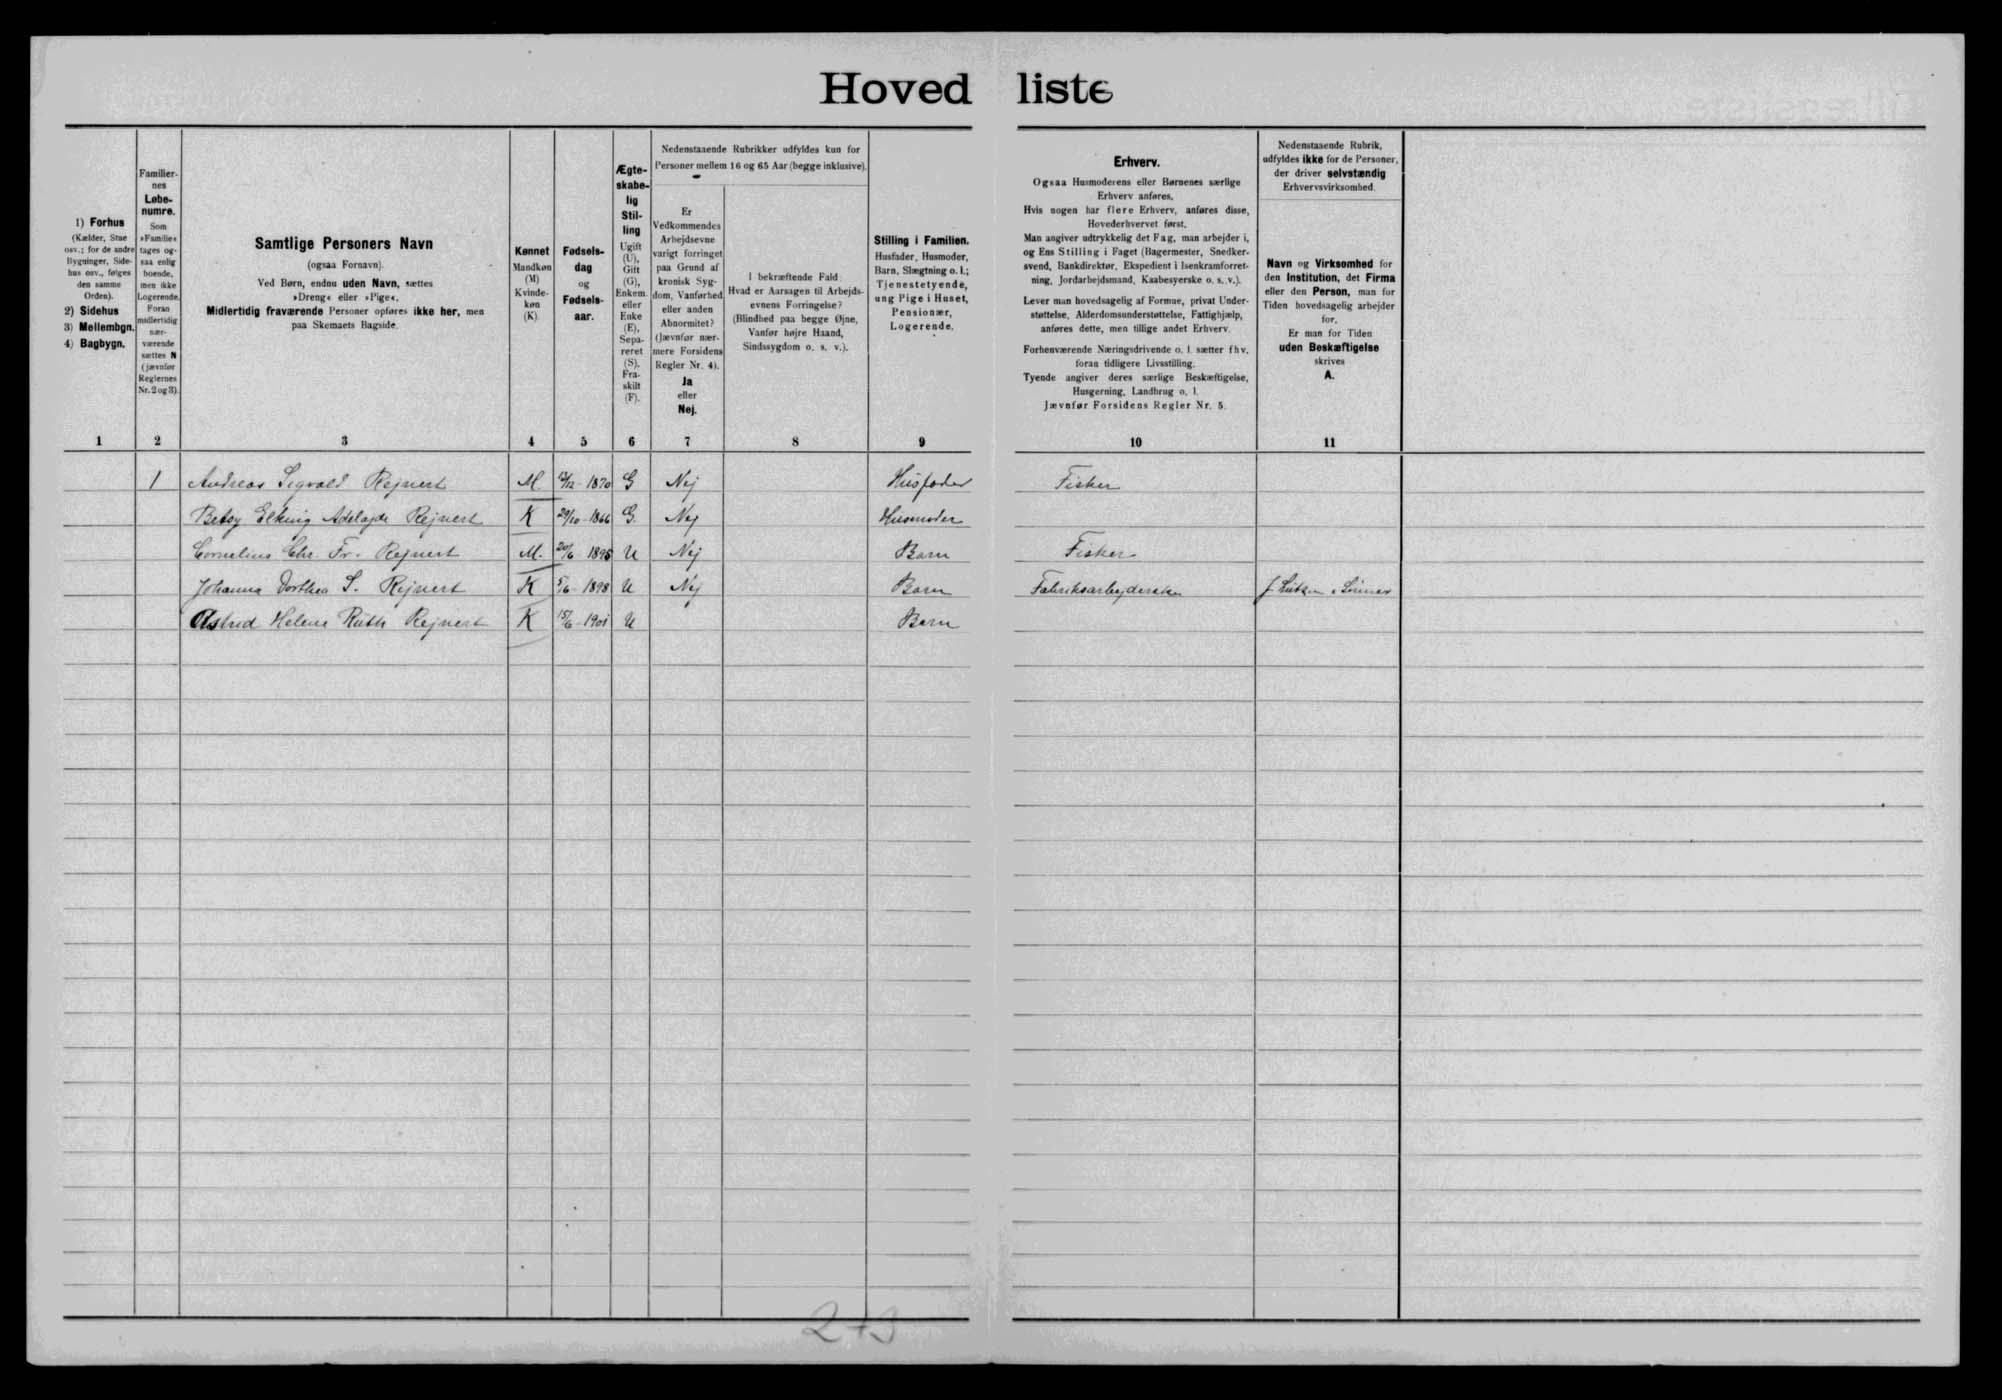 Hovedliste
1) Forhus
(Kælder, Stue
osv.; for de andre
Bygninger, Side-
hus osv., følges
den samme
Orden).
2) Sidehus
3) Mellembgn.
4) Bagbygn.
Familier-
nes
Løbe-
numre.
Som
»Familie«
tages og-
saa enlig
boende,
men ikke
Logerende.
Foran
midlertidig
nær-
værende
sættes N
(jævnfør
Reglernes
Nr. 2 og 3).
Samtlige Personers Navn
(ogsaa Fornavn).
Ved Børn, endnu uden Navn, sættes
»Dreng« eller »Pige«.
Midlertidig fraværende Personer opføres ikke her, men
paa Skemaets Bagside.
Kønnet
Mandkøn
(M)
Kvinde-
køn
(K).
Fødsels-
dag
og
Fødsels-
aar.
Ægte-
skabe-
lig
Stil-
ling
Ugift
(U),
Gift
(G),
Enkem.
eller
Enke
(E),
Sepa-
reret
(S),
Fra-
skilt
(F).
Nedenstaaende Rubrikker udfyldes kun for
Personer mellem 16 og 65 Aar (begge inklusive).
Er
Vedkommendes
Arbejdsevne
varigt forringet
paa Grund af
kronisk Syg-
dom, Vanførhed
eller anden
Abnormitet?
(Jævnfør nær-
mere Forsidens
Regler Nr. 4).
Ja
eller
Nej.
I bekræftende Fald:
Hvad er Aarsagen til Arbejds-
evnens Forringelse?
(Blindhed paa begge Øjne,
Vanfør højre Haand,
Sindssygdom o. s. v.).
Stilling i Familien.
Husfader, Husmoder,
Barn, Slægtning o. l.;
Tjenestetyende,
ung Pige i Huset,
Pensionær,
Logerende.
Erhverv.
Ogsaa Husmoderens eller Børnenes særlige
Erhverv anføres.
Hvis nogen har flere Erhverv, anføres disse,
Hovederhvervet først.
Man angiver udtrykkelig det Fag, man arbejder i,
og Ens Stilling i Faget (Bagermester, Snedker-
svend, Bankdirektør, Ekspedient i Isenkramforret-
ning, Jordarbejdsmand, Kaabesyerske o. s. v.).
Lever man hovedsagelig af Formue, privat Under-
støttelse, Alderdomsunderstøttelse, Fattighjælp,
anføres dette, men tillige andet Erhverv.
Forhenværende Næringsdrivende o. l. sætter fhv.
foran tidligere Livsstilling.
Tyende angiver deres særlige Beskæftigelse,
Husgerning, Landbrug o. l.
Jævnfør Forsidens Regler Nr. 5.
Nedenstaaende Rubrik,
udfyldes ikke for de Personer,
der driver selvstændig
Erhvervsvirksomhed.
Navn og Virksomhed for
den Institution, det Firma
eller den Person, man for
Tiden hovedsagelig arbejder
for.
Er man for Tiden
uden Beskæftigelse
skrives
A.
1 2 3 4 5 6 7 8 9 10 11
1 Andreas Sigvald Rejnert M. 1870 G Nej Husfader Fisker
Betsy Adelajde Rejnert K 29/10-1866 G. Nej Husmoder
Cornelius Chr. Fr. Rejnert M. 20/6 1895 U Nej Barn Fisker
Johanna Dorthea S. Rejnert K 5/6-1898 U Nej Barn Fabriksarbejderske
Astrid Helene Ruth Rejnert K 15/6-1901 U Barn
273